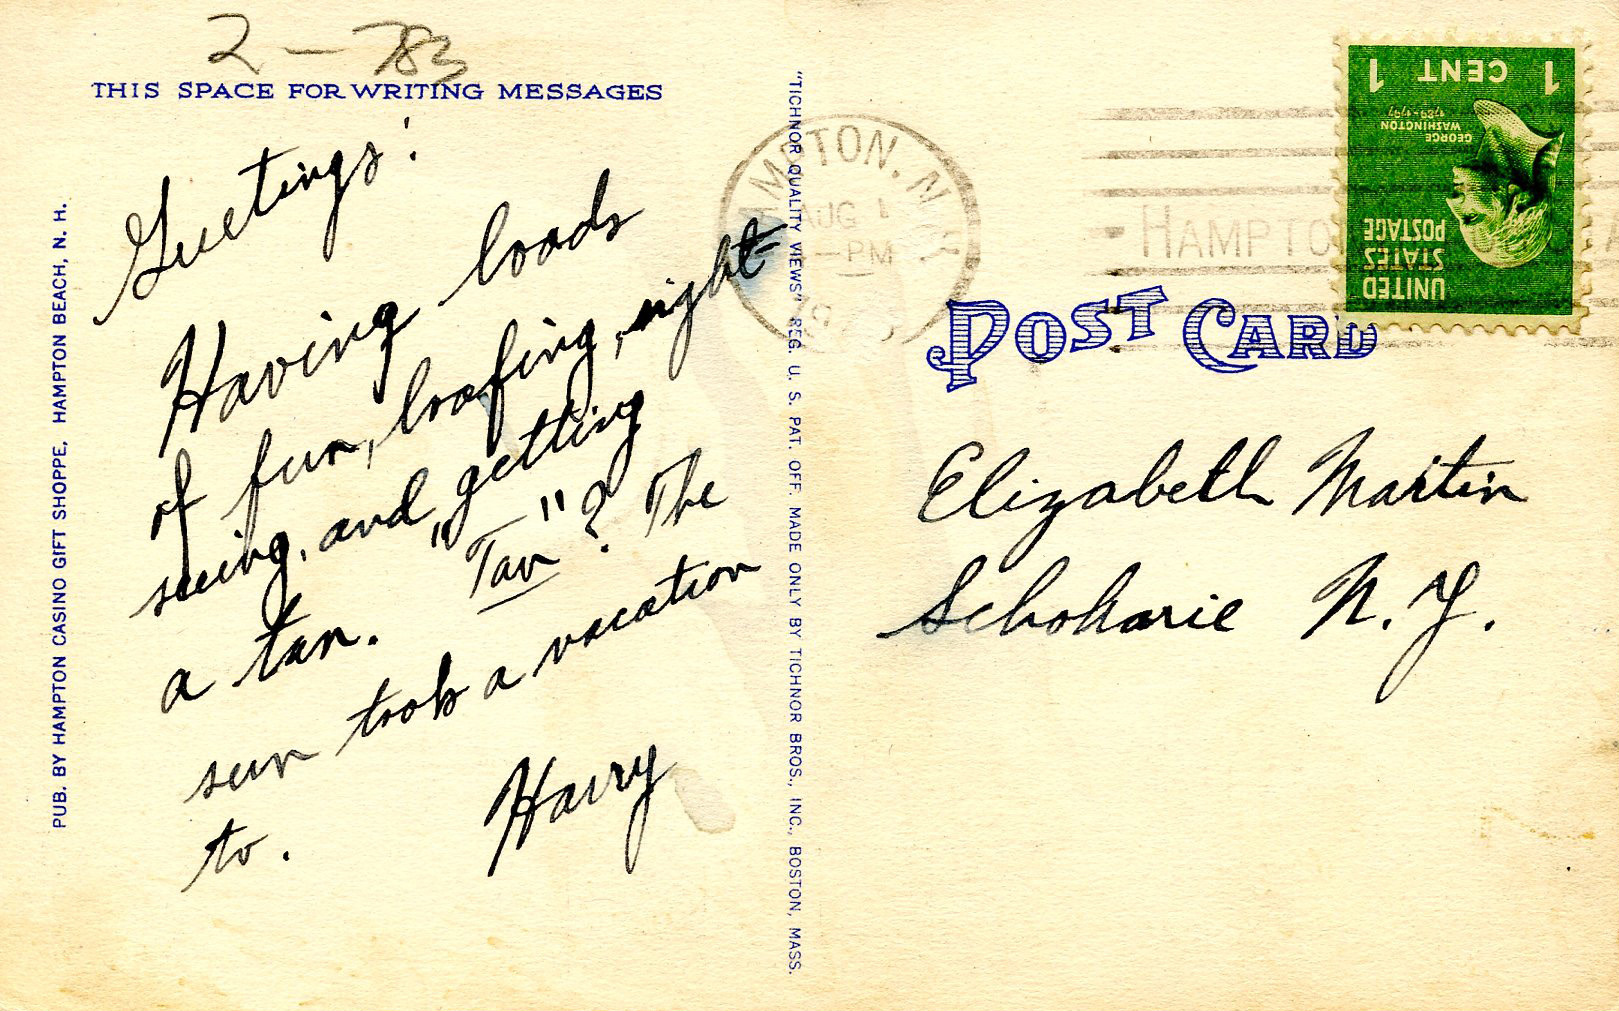 2 - 783
THIS SPACE FOR WRITING MESSAGES
Greetings!
Having loads
of fun, loafing, sight-
seeing, and getting
a tan. "Tan"? The
sun took a vacation
to.
Harry
PUB. BY HAMPTON CASINO GIFT SHOPPE, HAMPTON BEACH, N. H.
"TICHNOR QUALITY VIEWS" REG. U. S. PAT. OFF. MADE ONLY BY TICHNOR BROS., INC., BOSTON, MASS.
HAMPTON, N.H.
AUG
PM
HAMPTO
1 CENT 1
GEORGE
WASHINGTON
1789-1797
UNITED
STATES
POSTAGE
POST CARD
Elizabeth Martin
Schoharie N. Y.